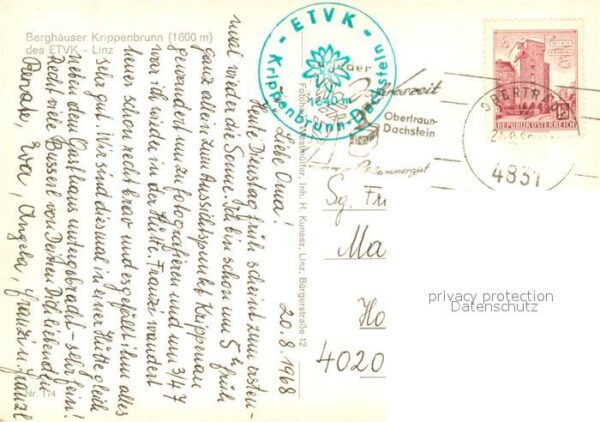 Berghäuser Krippenbrunn (1600 m)
des ETVK - Linz
20.8.1968
Liebe Oma!
Heute Dienstag früh scheint zum ersten-
mal wieder die Sonne. Ich bin schon um 5h früh
ganz allein zum Aussichtspunkt Krippenau
gewandert um zu fotografieren und um 3/4 7
war ich wieder in der Hütte. Franzi wandert
heuer schon recht brav und es gefällt ihm alles
sehr gut. Wir sind diesmal in einer Hütte gleich
neben dem Gasthaus untergebracht - sehr fein!
Recht viele Busserl von Deinen Dich liebenden
Renate, Eva, Angela, Franzi u. Franzl
Nr. 174
Inh. H. Kunasz, Linz, Bürgerstraße 12
- ETVK -
Krippenbrunn-Dachstein
1640 m
Obertraun-
Dachstein
OBERTRAUN
4831
REPUBLIK ÖSTERREICH
Sg.
Ma
Ho
4020
privacy protection
Datenschutz